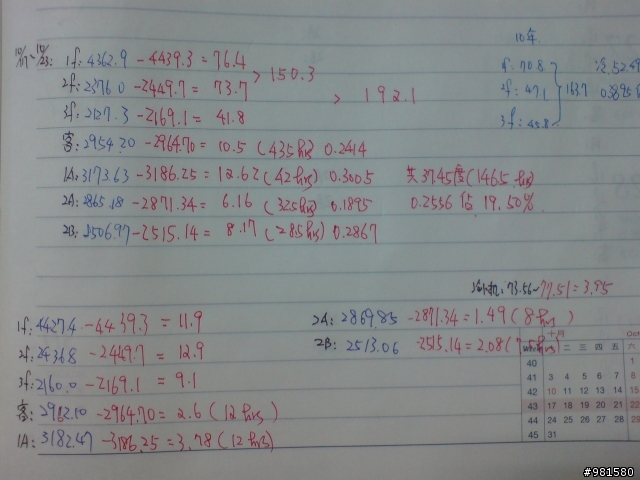 10年
10/17~10/23: 1f: 4362.9 -4439.3 = 76.4
> 150.3
2f: 2376.0 -2449.7 = 73.7
> 192.1
3f: 2127.3 -2169.1 = 41.8
1f: 70.8
2f: 47.1
3f: 45.8
163.7
客: 2954.20 -2964.70 = 10.5 (43.5 hrs) 0.2414
1A: 3173.63 -3186.25 = 12.62 (42 hrs) 0.3005 共37.45度(146.5 hrs)
2A: 2865.18 -2871.34 = 6.16 (32.5 hrs) 0.1895 0.2556 佔 19.50%
2B: 2506.97 -2515.14 = 8.17 (28.5 hrs) 0.2867
冷小机: 73.56~77.51 = 3.95
1f: 4427.4 -4439.3 = 11.9 2A: 2869.85 -2871.34 = 1.49 (8 hrs)
2f: 2436.8 -2449.7 = 12.9 2B: 2513.06 -2515.14 = 2.08
3f: 2160.0 -2169.1 = 9.1
客: 2962.10 -2964.70 = 2.6 (12 hrs)
1A: 3182.47 -3186.25 = 3.78 (12 hrs)
十月 Oct
二 三 四 五 六
40 1
41 3 4 5 6 7 8
42 10 11 12 13 14 15
43 17 18 19 20 21 22
44 24 25 26 27 28 29
45 31
#981580